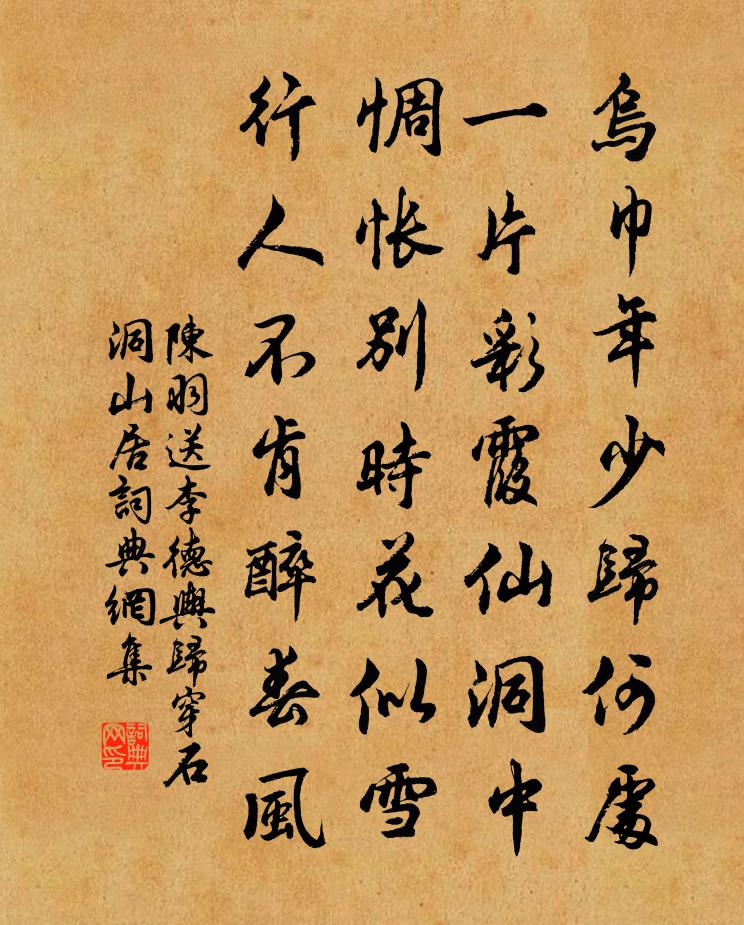 烏巾年少歸何處
一片彩霞仙洞中
惆悵別時花似雪
行人不肯醉春風
陳羽送李德輿歸穿石
洞山居詞典網集
詞典網印